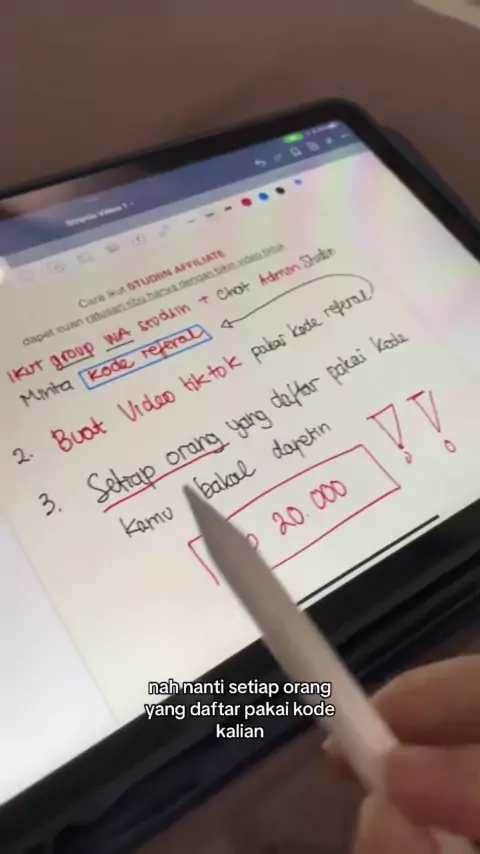 Cara ikut STUDIIN AFFILIATE
dapet cuan ratusan ribu hanya dengan bikin video tiktok
IKUT group WA Studiin + Chat Admin Studiin
Minta kode referal
2. Buat Video tiktok pakai kode referal
3. Setiap orang yang daftar pakai kode
kamu bakal dapetin
20.000 !!
nah nanti setiap orang
yang daftar pakai kode
kalian